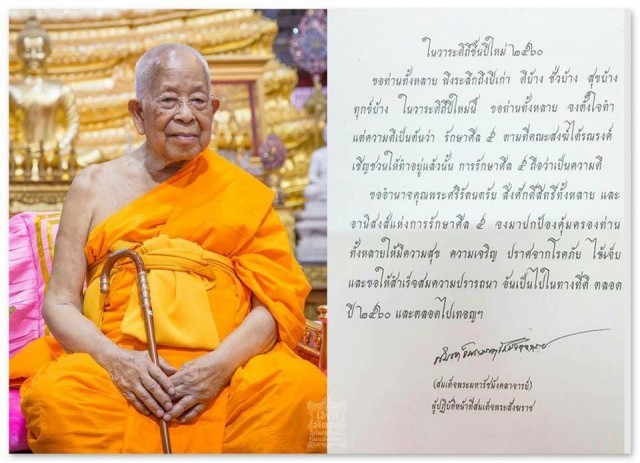 ในวาระดิถีขึ้นปีใหม่ ๒๕๖๐
ขอท่านทั้งหลาย พึงระลึกถึงปีเก่า ดีบ้าง ชั่วบ้าง สุขบ้าง
ทุกข์บ้าง ในวาระดิถีปีใหม่นี้ ขอท่านทั้งหลาย จงตั้งใจทำ
แต่ความดีเป็นต้นว่า รักษาศีล ๕ ตามที่คณะสงฆ์ได้รณรงค์
เชิญชวนให้ทำอยู่แล้วนั้น การรักษาศีล ๕ ถือว่าเป็นความดี
ขออำนาจคุณพระศรีรัตนตรัย สิ่งศักดิ์สิทธิ์ทั้งหลาย และ
อานิสงส์แห่งการรักษาศีล ๕ จงมาปกป้องคุ้มครองท่าน
ทั้งหลายให้มีความสุข ความเจริญ ปราศจากโรคภัย ไข้เจ็บ
และขอให้สำเร็จสมความปรารถนา อันเป็นไปในทางที่ดี ตลอด
ปี ๒๕๖๐ และตลอดไปเทอญฯ
(สมเด็จพระมหารัชมังคลาจารย์)
ผู้ปฏิบัติหน้าที่สมเด็จพระสังฆราช